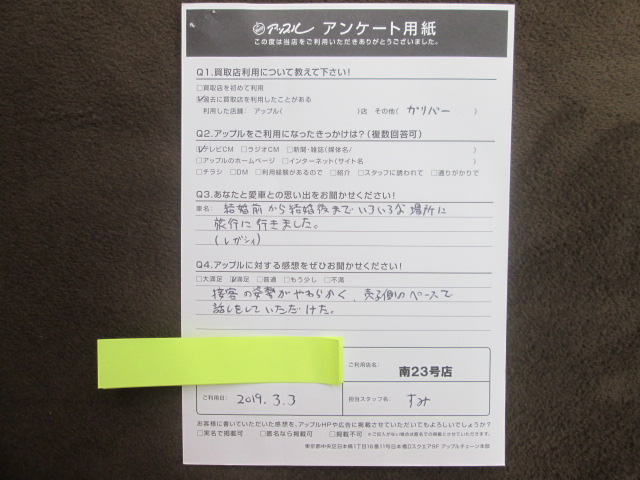 アップル アンケート用紙
この度は当店をご利用いただきありがとうございました。
Q1.買取店利用について教えて下さい!
□買取店を初めて利用
☑過去に買取店を利用したことがある
利用した店舗: アップル( )店 その他( ガリバー )
Q2.アップルをご利用になったきっかけは?(複数回答可)
☑テレビCM □ラジオCM □新聞・雑誌(媒体名/ )
□アップルのホームページ □インターネット(サイト名 )
□チラシ □DM □利用経験があるので □紹介 □スタッフに誘われて □通りがかりで
Q3.あなたと愛車との思い出をお聞かせください!
車名: 結婚前から結婚後までいろいろな場所に
旅行に行きました。
(レガシィ)
Q4.アップルに対する感想をぜひお聞かせください!
□大満足 ☑満足 □普通 □もう少し □不満
接客の姿勢がやわらかく、売る側のペースで
話しをしていただけた。
ご利用店名: 南23号店
ご利用日: 2019.3.3 担当スタッフ名: すみ
お客様に書いていただいた感想を、アップルHPや広告に掲載させていただいてもよろしいでしょうか?
□実名で掲載可 □匿名なら掲載可 □掲載不可 ※ご記入がない場合は匿名での掲載とさせていただきます。
東京都中央区日本橋1丁目16番11号日本橋Dスクエア9F アップルチェーン本部